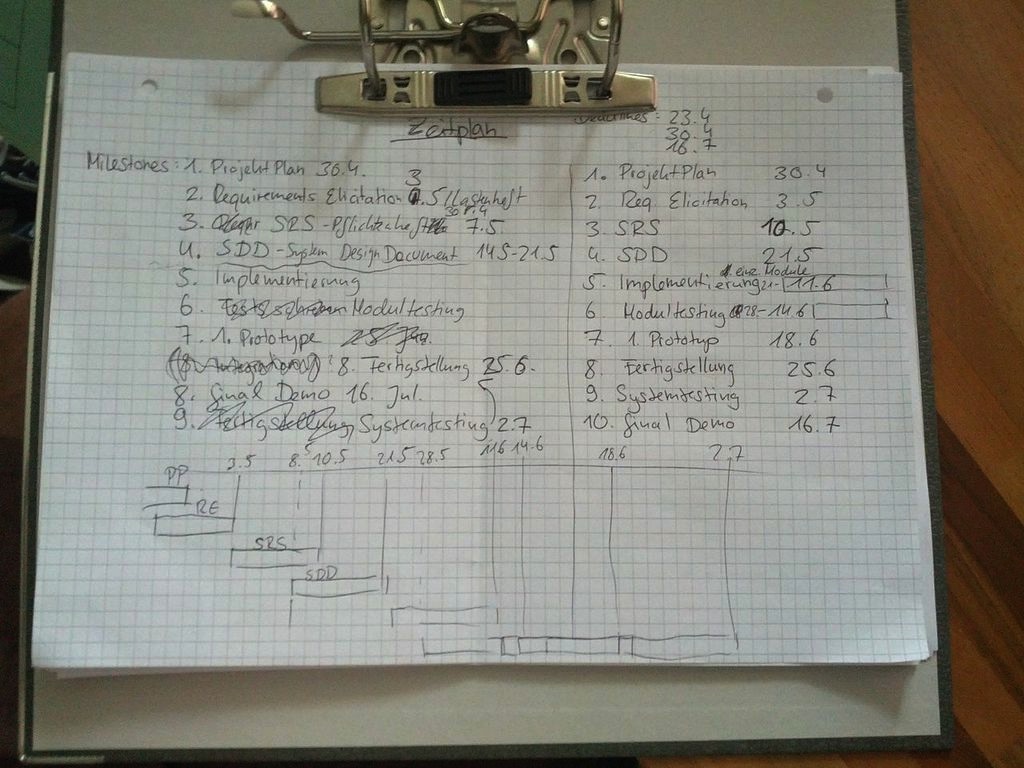 Zeitplan
Deadlines: 23.4
30.4
16.7
Milestones: 1. ProjektPlan 30.4.
2. Requirements Elicitation 3.5 / Lastenheft
3. SRS - Pflichtenheft 7.5.
4. SDD - System Design Document 14.5-21.5
5. Implementierung
6. Modultesting
7. 1. Prototype
8. Fertigstellung 25.6.
8. final Demo 16. Jul.
9. Fertigstellung, Systemtesting 2.7
1. ProjektPlan 30.4
2. Req. Elicitation 3.5
3. SRS 10.5
4. SDD 21.5
d. einz. Module
5. Implementierung 21-11.6
6. Modultesting 28-14.6
7. 1. Prototyp 18.6
8. Fertigstellung 25.6
9. Systemtesting 2.7
10. final Demo 16.7
3.5 8.5 10.5 21.5 28.5 11.6 14.6 18.6 2.7
PP
RE
SRS
SDD